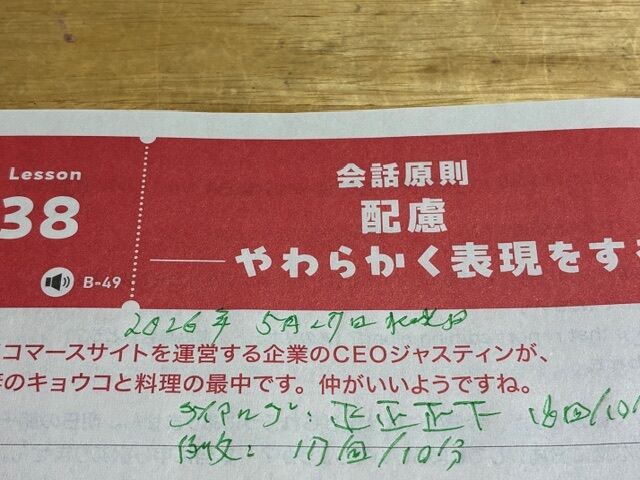 Lesson
38
B-49
会話原則
配慮
やわらかく表現をす
2026年 5月27日水曜日
コマースサイトを運営する企業のCEOジャスティンが、
のキョウコと料理の最中です。仲がいいようですね。
ダイアログ: 正正正下 18回/10
17回/10分